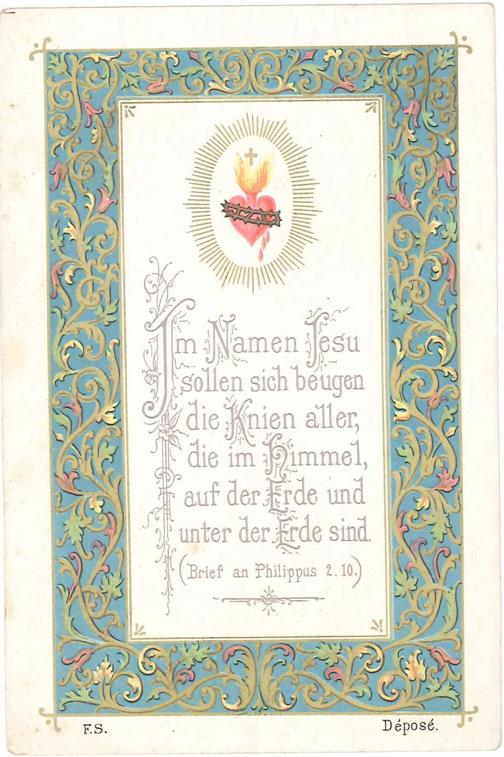 Im Namen Jesu
sollen sich beugen
die Knien aller,
die im Himmel,
auf der Erde und
unter der Erde sind.
(Brief an Philippus 2. 10.)
F.S.
Déposé.